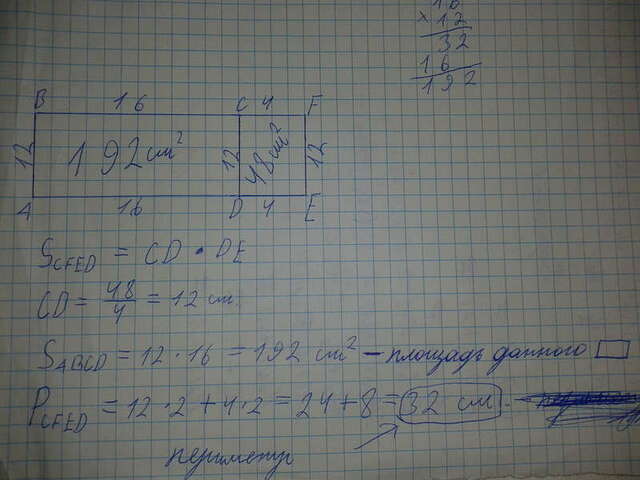 16
× 12
32
16
192
B 16 C 4 F
12 192 см² 12 48 см² 12
A 16 D 4 E
S_CFED = CD · DE
CD = 48/4 = 12 см.
S_ABCD = 12 · 16 = 192 см² – площадь данного
P_CFED = 12 · 2 + 4 · 2 = 24 + 8 = 32 см.
периметр